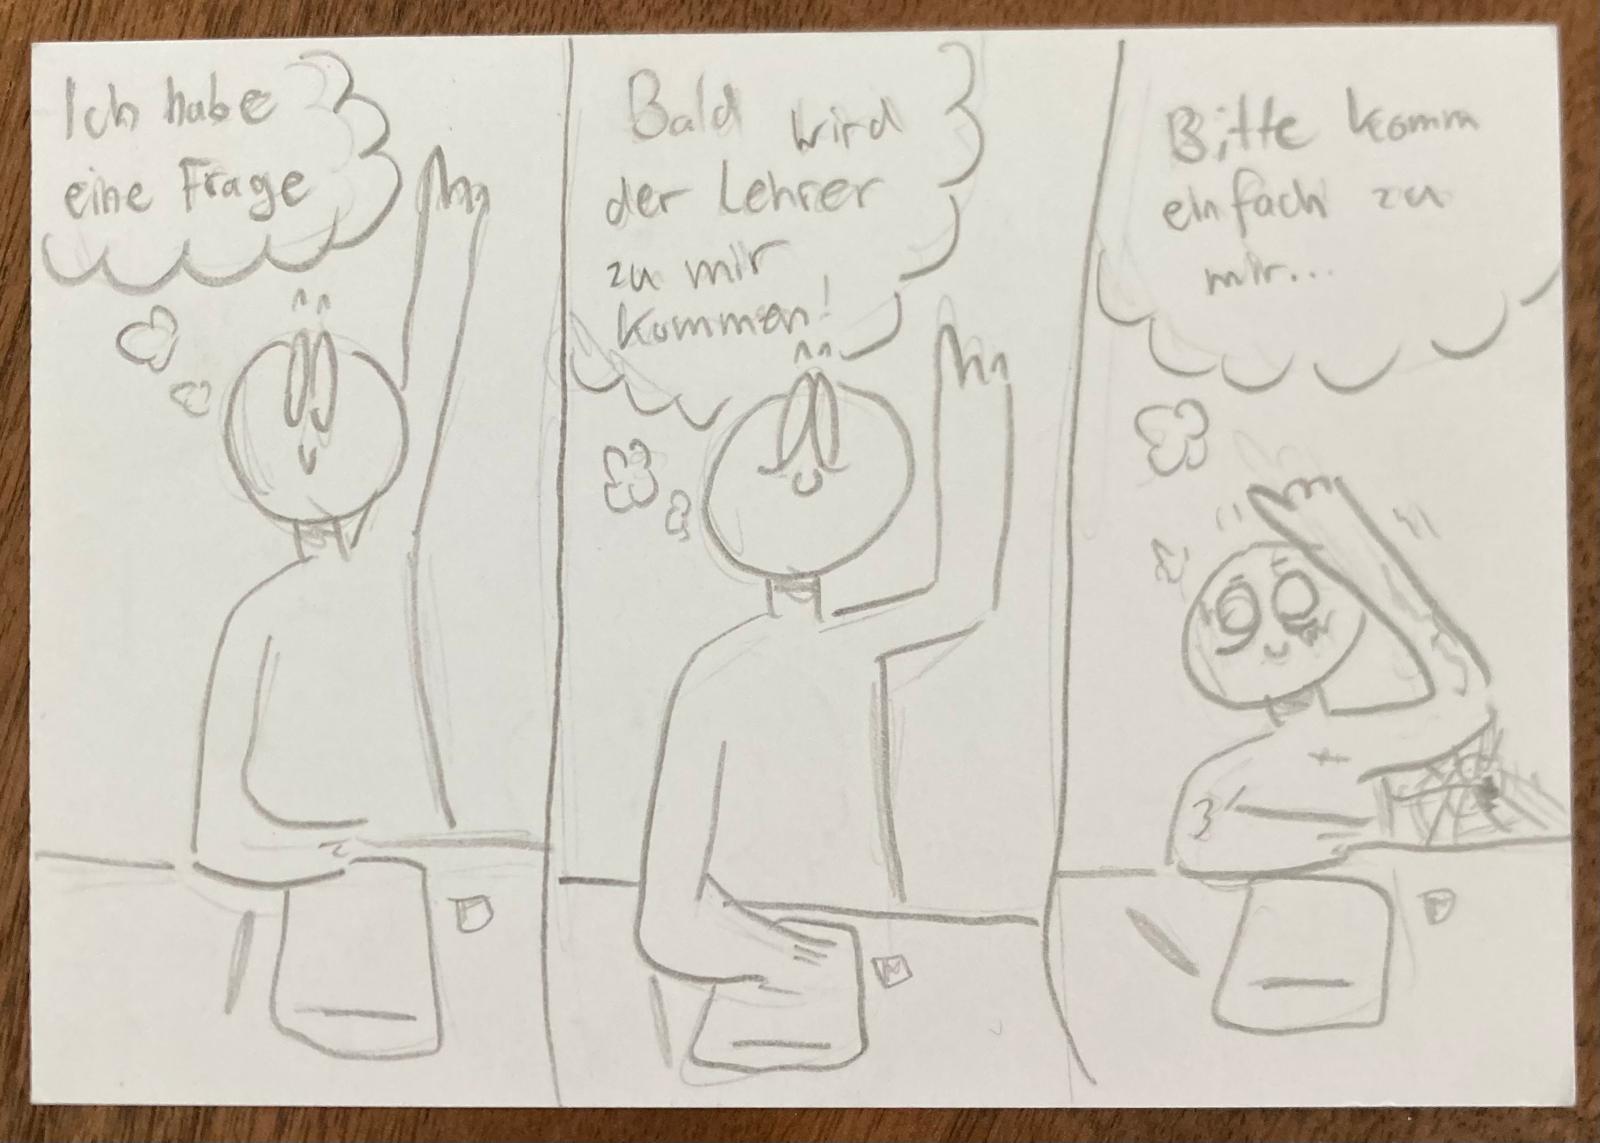 Ich habe
eine Frage
Bald wird
der Lehrer
zu mir
kommen!
Bitte komm
einfach zu
mir...